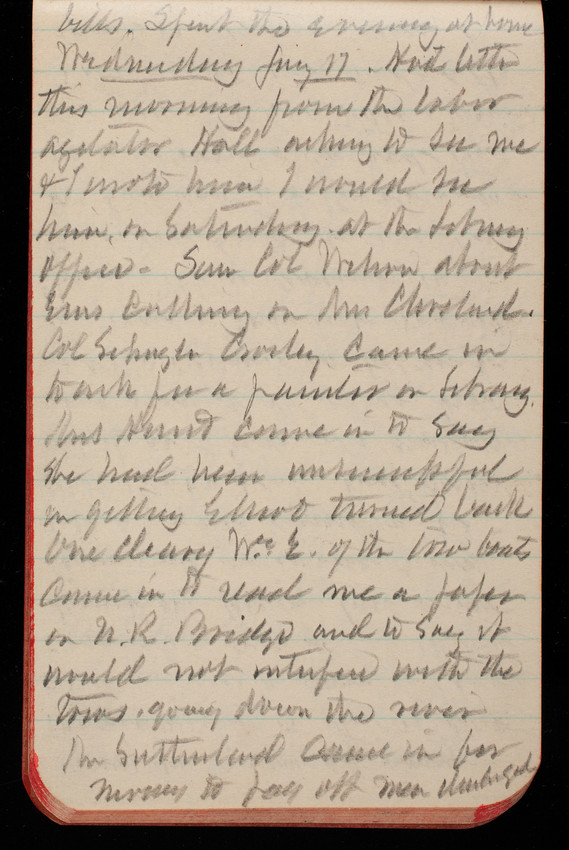 bills. Spent the evening at home
Wednesday Jany 17. Had letter
this morning from the labor
agitator Hall asking to see me
& I wrote him I would see
him, on Saturday at the Library
office - Saw Col Wilson about
Ems calling on Mrs Cleveland.
Col Schuyler Crosby came in
to ask for a painter on Library.
Mrs Hunt came in to say
she had been unsuccessful
in getting turned back
One Cleary Wm E. of the tow boats
came in to read me a paper
on N.R. Bridge and to say it
would not interfere with the
tows going down the river
Mr Sutherland came in for
money to pay off men discharged